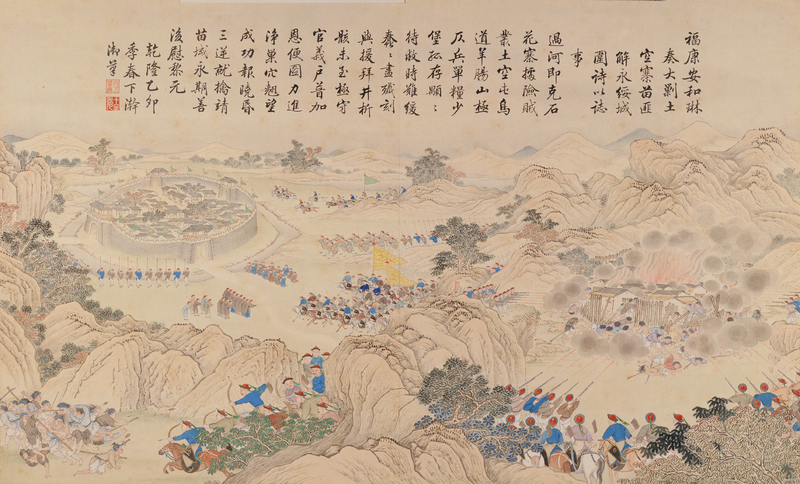 福康安和琳
奏大剿土
空寨苗匪
解永綏城
圍詩以誌
事
過河即克石
花寨據險賊
業土空屯鳥
道羊腸山極
仄兵單糧少
堡孤存顒〻
待救時難緩
蠢〻盡殲刻
與援拜井祈
骸未至極守
官義戶首加
恩便圖力進
淨巢穴翹望
成功報曉昏
三逆就擒靖
苗域永期善
後慰黎元
乾隆乙卯
季春下澣
御筆